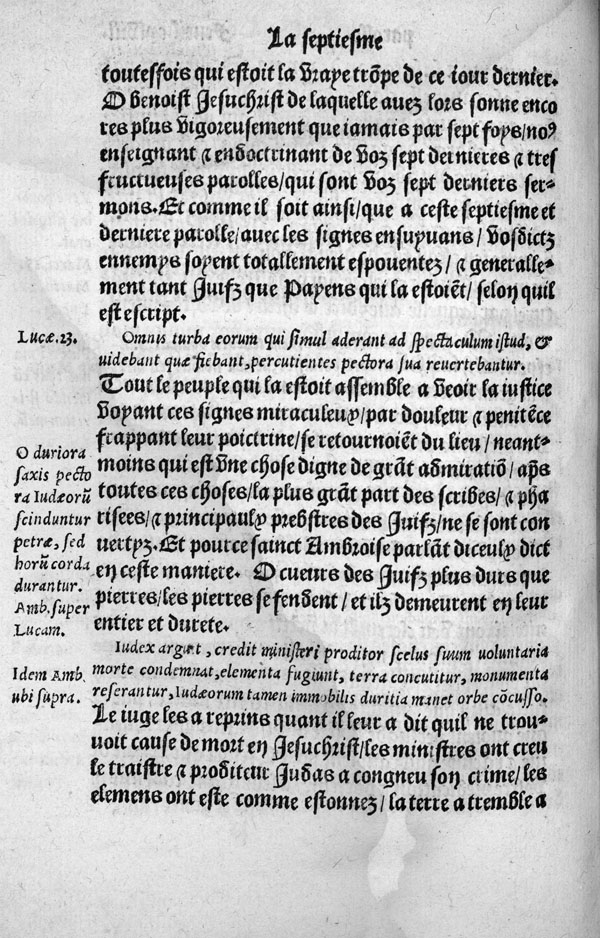 La septiesme
toutesfois qui estoit la vraye trõpe de ce iour dernier.
O benoist Jesuchrist de laquelle auez lors sonne enco
res plus vigoreusement que iamais par sept foys/noꝰ
enseignant ⁊ endoctrinant de voz sept dernieres ⁊ tres
fructueuses parolles/qui sont voz sept derniers ser-
mons. Et comme il soit ainsi/que a ceste septiesme et
derniere parolle/auec les signes ensuyuans/ vosdictz
ennemys soyent totallement espouentez/ ⁊ generalle-
ment tant Juifz que Payens qui la estoiẽt/ selon quil
est escript.
Lucæ. 23.
Omnis turba eorum qui simul aderant ad spectaculum istud, &
uidebant quæ fiebant, percutientes pectora sua reuertebantur.
Tout le peuple qui la estoit assemble a veoir la iustice
voyant ces signes miraculeux/par douleur ⁊ penitẽce
frappant leur poictrine/se retournoiẽt du lieu/ neant-
moins qui est vne chose digne de grãt admiratiõ/ aps
toutes ces choses/la plus grãt part des scribes/ ⁊ pha
risees/⁊ principaulx prebstres des Juifz/ne se sont con
uertyz. Et pource sainct Ambroise parlãt diceulx dict
en ceste maniere. O cueurs des Juifz plus durs que
pierres/les pierres se fendent/ et ilz demeurent en leur
entier et durete.
O duriora
saxis pecto
ra Iudæorũ
scinduntur
petræ, sed
horũ corda
durantur.
Amb. super
Lucam.
Iudex arguit, credit ministeri proditor scelus suum voluntaria
morte condemnat, elementa fugiunt, terra concutitur, monumenta
reserantur, Iudæorum tamen immobilis duritia manet orbe cõcusso.
Idem Amb.
ubi supra.
Le iuge les a reprins quant il leur a dit quil ne trou-
uoit cause de mort en Jesuchrist/les ministres ont creu
le traistre ⁊ proditeur Judas a congneu son crime/les
elemens ont este comme estonnez/ la terre a tremble a